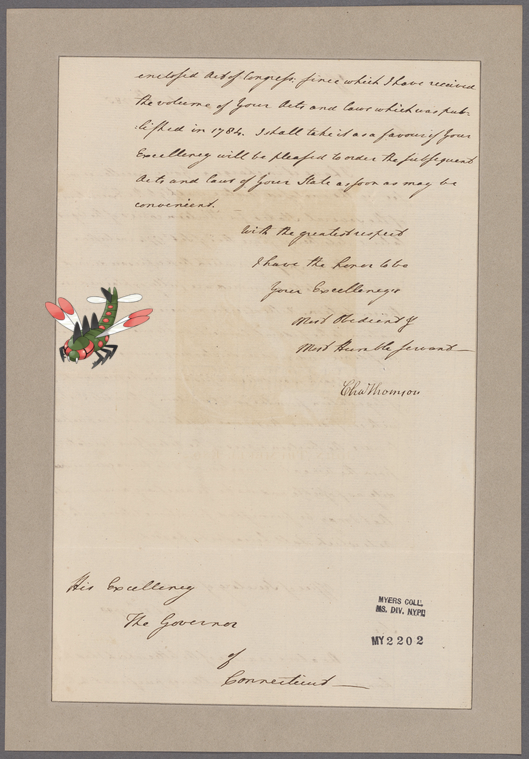 enclosed Act of Congress. since which I have received
the volume of Your Acts and laws which was pub-
lished in 1784. I shall take it as a favour if Your
Excellency will be pleased to order the subsequent
Acts and laws of Your State as soon as may be
convenient.
With the greatest respect
I have the honor to be
Your Excellency's
Most Obedient &
Most Humble Servant
Cha Thomson
His Excellency
The Governor
of
Connecticut
MYERS COLL.
MS. DIV. NYPL
MY2202